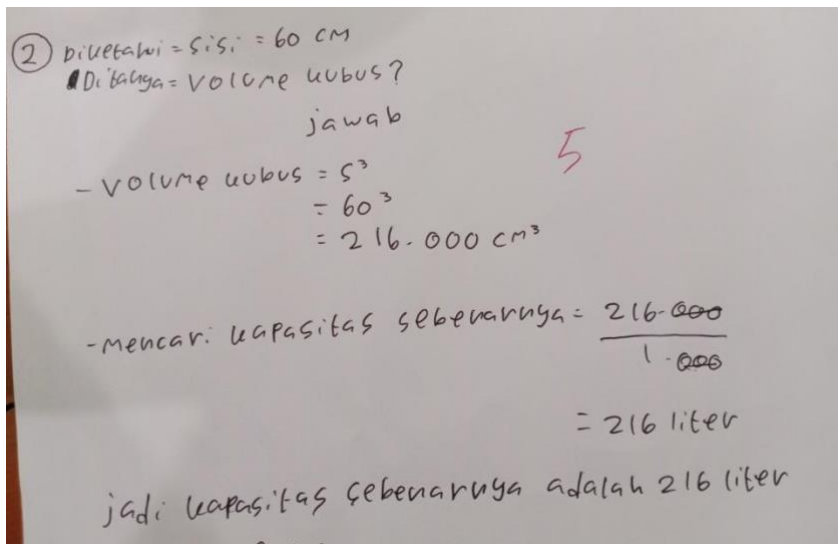 2 Diketahui = sisi = 60 cm
Ditanya = Volume kubus?
jawab
5
- Volume kubus = s³
= 60³
= 216.000 cm³
- mencari kapasitas sebenarnya = 216.000
1.000
= 216 liter
jadi kapasitas sebenarnya adalah 216 liter